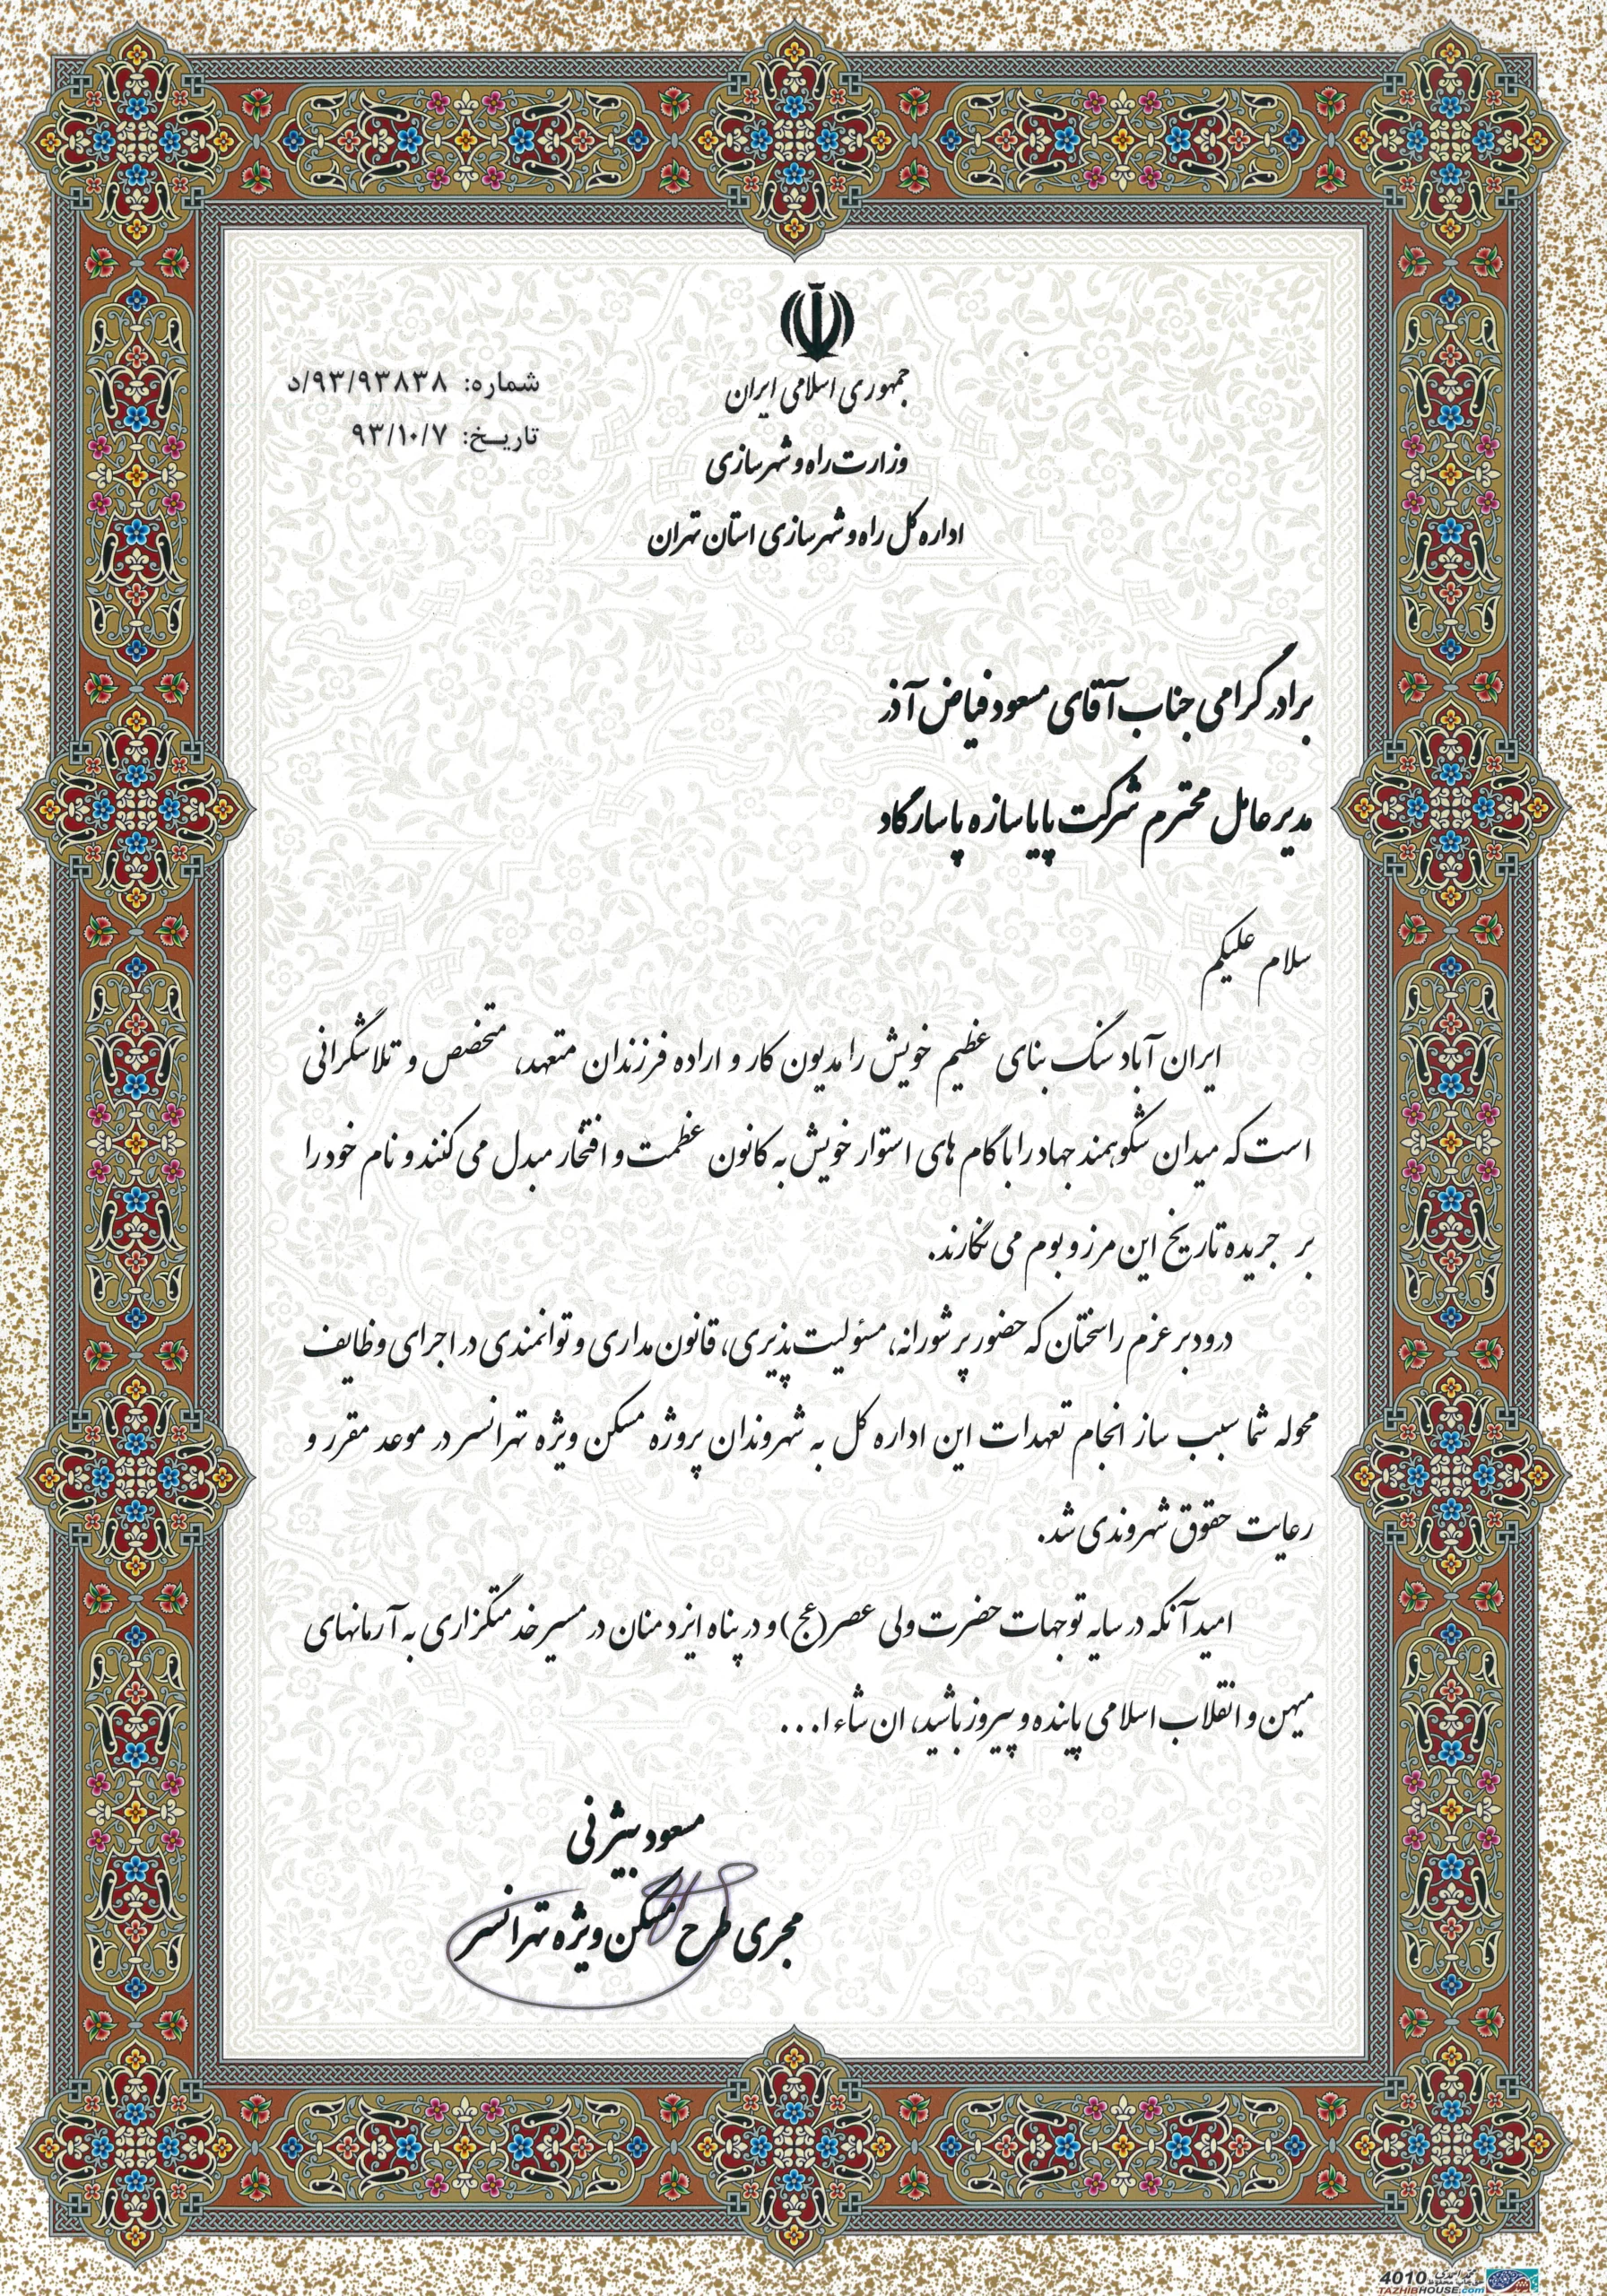 جمهوری اسلامی ایران
وزارت راه و شهرسازی
اداره کل راه و شهرسازی استان تهران
شماره: ۹۳/۹۳۸۳۸/د
تاریـخ: ۹۳/۱۰/۷
برادر گرامی جناب آقای مسعود فیاض آذر
مدیرعامل محترم شرکت پایا سازه پاسارگاد
سلام علیکم
ایران آباد سنگ بنای عظیم خویش را مدیون کار و اراده فرزندان متعهد، متخصص و تلاشگرانی
است که میدان شکوهمند جهاد را با گام های استوار خویش به کانون عظمت و افتخار مبدل می کنند و نام خود را
بر جریده تاریخ این مرز و بوم می نگارند.
درود بر عزم راسختان که حضور پر شورانه، مسئولیت پذیری، قانون مداری و توانمندی در اجرای وظایف
محوله شما سبب ساز انجام تعهدات این اداره کل به شهروندان پروژه مسکن ویژه تهرانسر در موعد مقرر و
رعایت حقوق شهروندی شد.
امید آنکه در سایه توجهات حضرت ولی عصر(عج) و در پناه ایزد منان در مسیر خدمتگزاری به آرمانهای
میهن و انقلاب اسلامی پاینده و پیروز باشید، ان شاء ا...
مسعود بیژنی
مجری طرح مسکن ویژه تهرانسر
4010
TAZHIBHOUSE.com